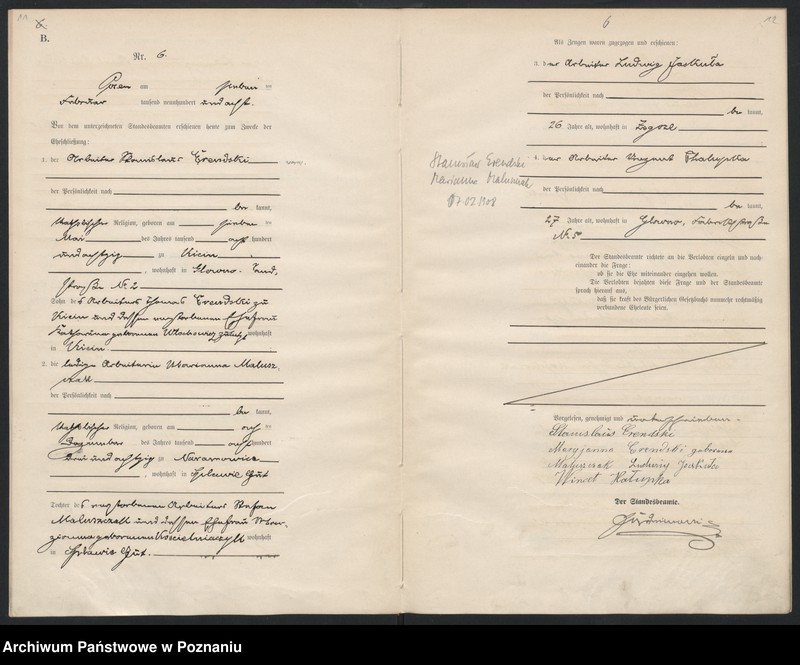 11
6.
B.
Nr. 6.
Posen am sieben ten
Februar tausend neunhundert und acht.
Vor dem unterzeichneten Standesbeamten erschienen heute zum Zwecke der
Eheschließung:
1. der Arbeiter Stanislaus Crendski
der Persönlichkeit nach
be kannt,
katholischer Religion, geboren am sieben ten
Mai des Jahres tausend acht hundert
undachtzig zu Kicin
, wohnhaft in Glowno.
straße Nr. 2
Sohn des Arbeiters Thomas Crendski zu
Kicin und dessen verstorbenen Ehefrau
Katharina geborenen zuletzt wohnhaft
in Kicin.
2. die ledige Arbeiterin Marianna Malusz
czak
der Persönlichkeit nach
be kannt,
katholischer Religion, geboren am ach ten
Dezember des Jahres tausend acht hundert
drei und achtzig zu Naramowice
, wohnhaft in Gut
Tochter des verstorbenen Arbeiters Stefan
und dessen Ehefrau Marianna geborenen wohnhaft
in Gut.
6
12
Als Zeugen waren zugezogen und erschienen:
3. der Arbeiter Ludwig Jaskula
der Persönlichkeit nach
be kannt,
26 Jahre alt, wohnhaft in Zegrze
4. der Arbeiter Vinzent Chalupka
der Persönlichkeit nach
be kannt,
27 Jahre alt, wohnhaft in Glowno,
Nr. 5
Stanisław Crendski
Marianna Maluszczak
07.02.1908
Der Standesbeamte richtete an die Verlobten einzeln und nach-
einander die Frage:
ob sie die Ehe miteinander eingehen wollen.
Die Verlobten bejahten diese Frage und der Standesbeamte
sprach hierauf aus,
daß sie kraft des Bürgerlichen Gesetzbuchs nunmehr rechtmäßig
verbundene Eheleute seien.
Vorgelesen, genehmigt und unterschrieben.
Stanislaus Crendski
Maryanna Crendski geborene
Maluszczak Ludwig Jaskula
Wincet Hałupka
Der Standesbeamte.
Archiwum Państwowe w Poznaniu